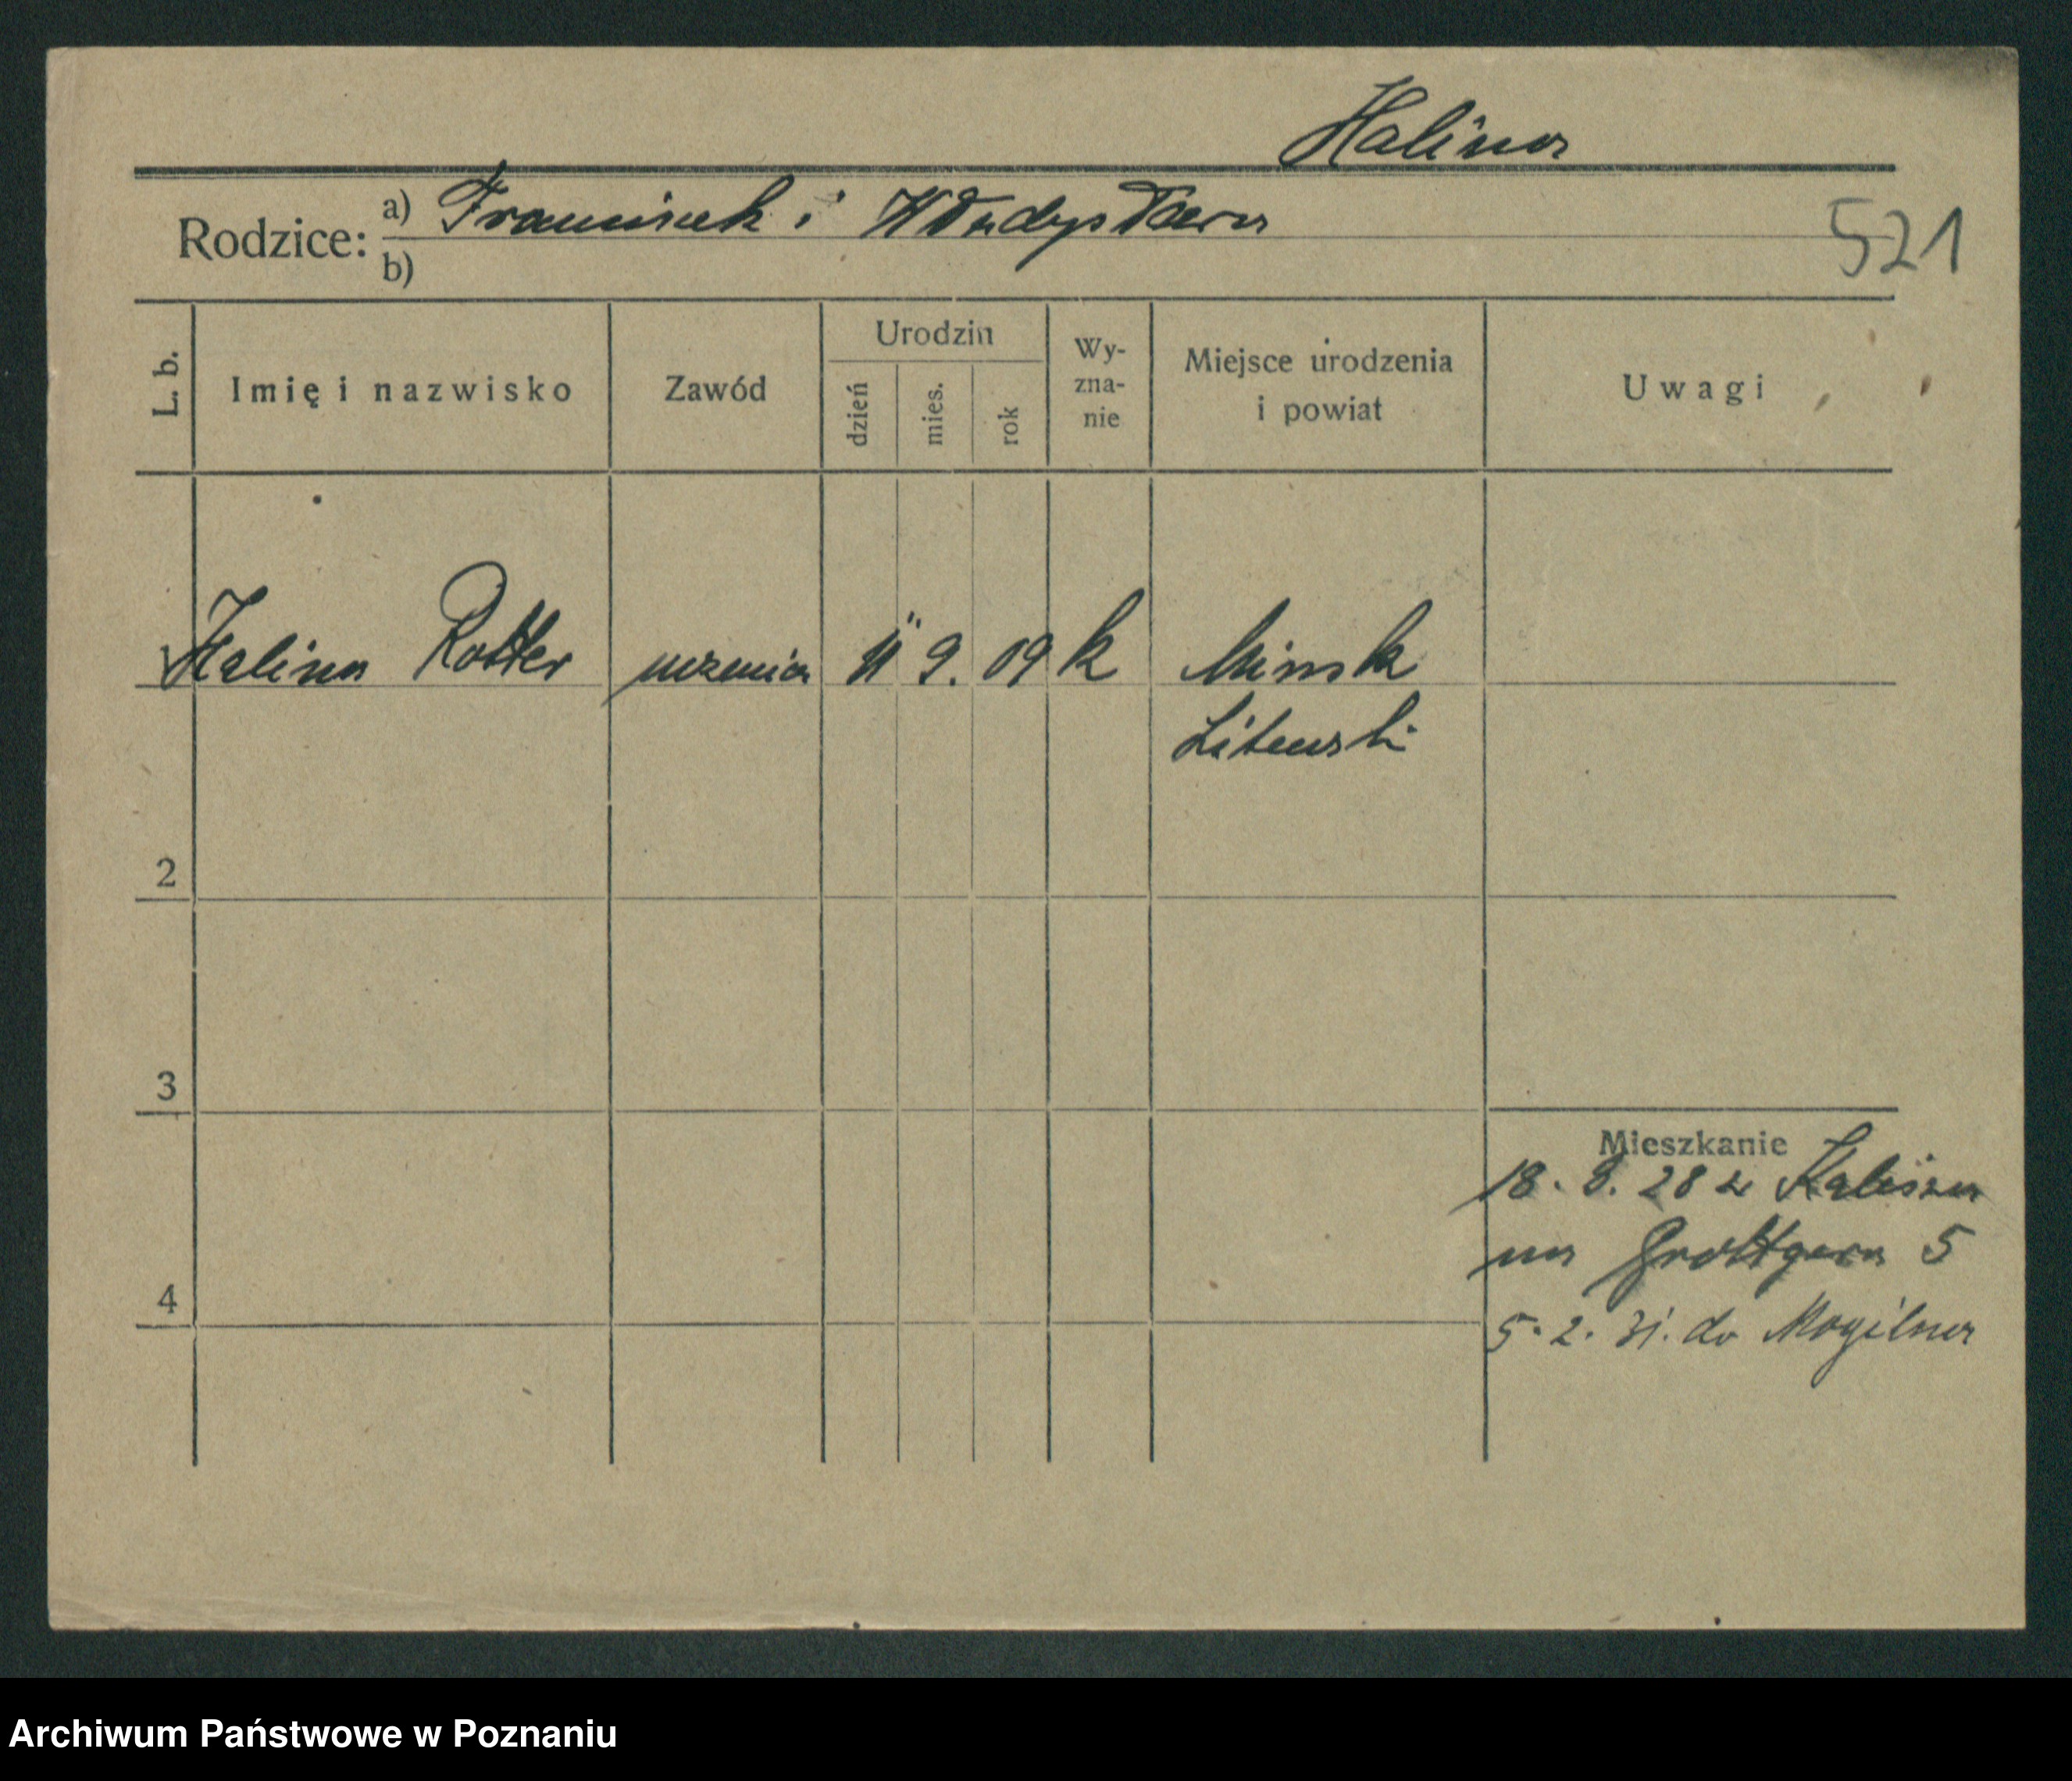 Halina
Rodzice: a) Franciszek i Władysława
521
b)
L. b. Imię i nazwisko Zawód Urodzin dzień mies. rok Wy-zna-nie Miejsce urodzenia i powiat Uwagi
1 Halina Rotter uczenica 11 9. 09 k Minsk
Litewski
2
3
Mieszkanie
18. 8. 28 z Kalisza
na Grottgera 5
4
5. 2. 31. do Mogilna
Archiwum Państwowe w Poznaniu